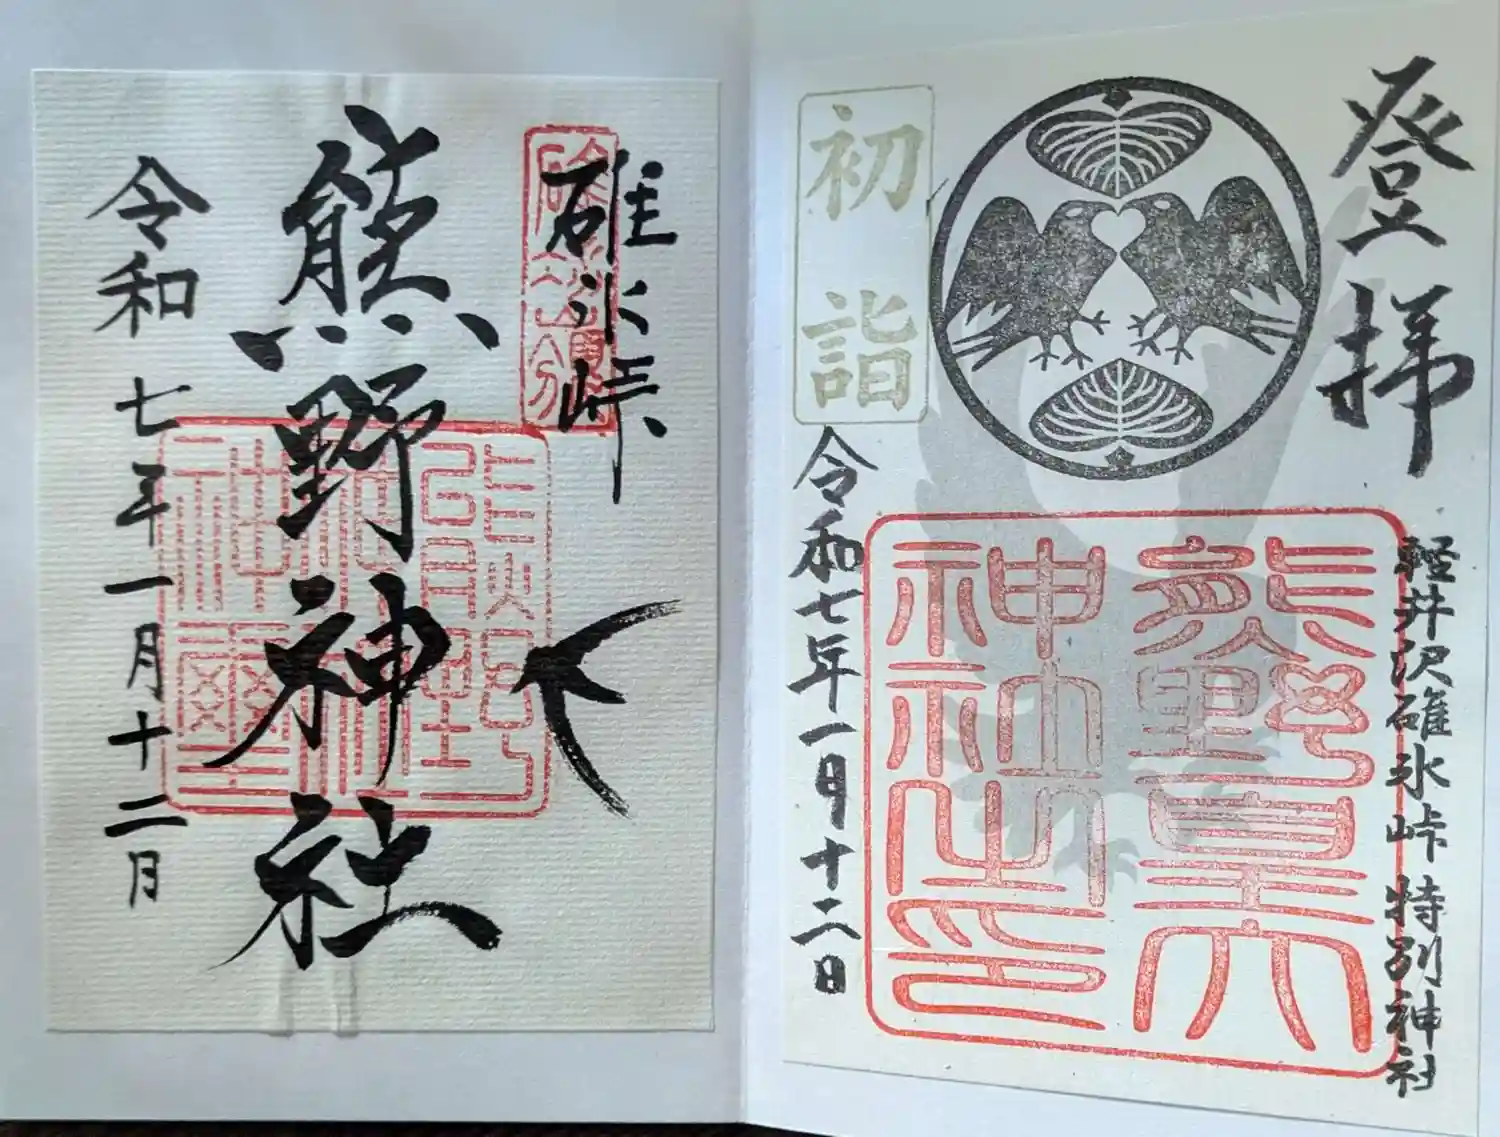 登拝
軽井沢碓氷峠 特別神社
熊野皇大
神社之印
初詣
令和七年一月十二日
碓氷峠
熊野神社
令和七年一月十二日